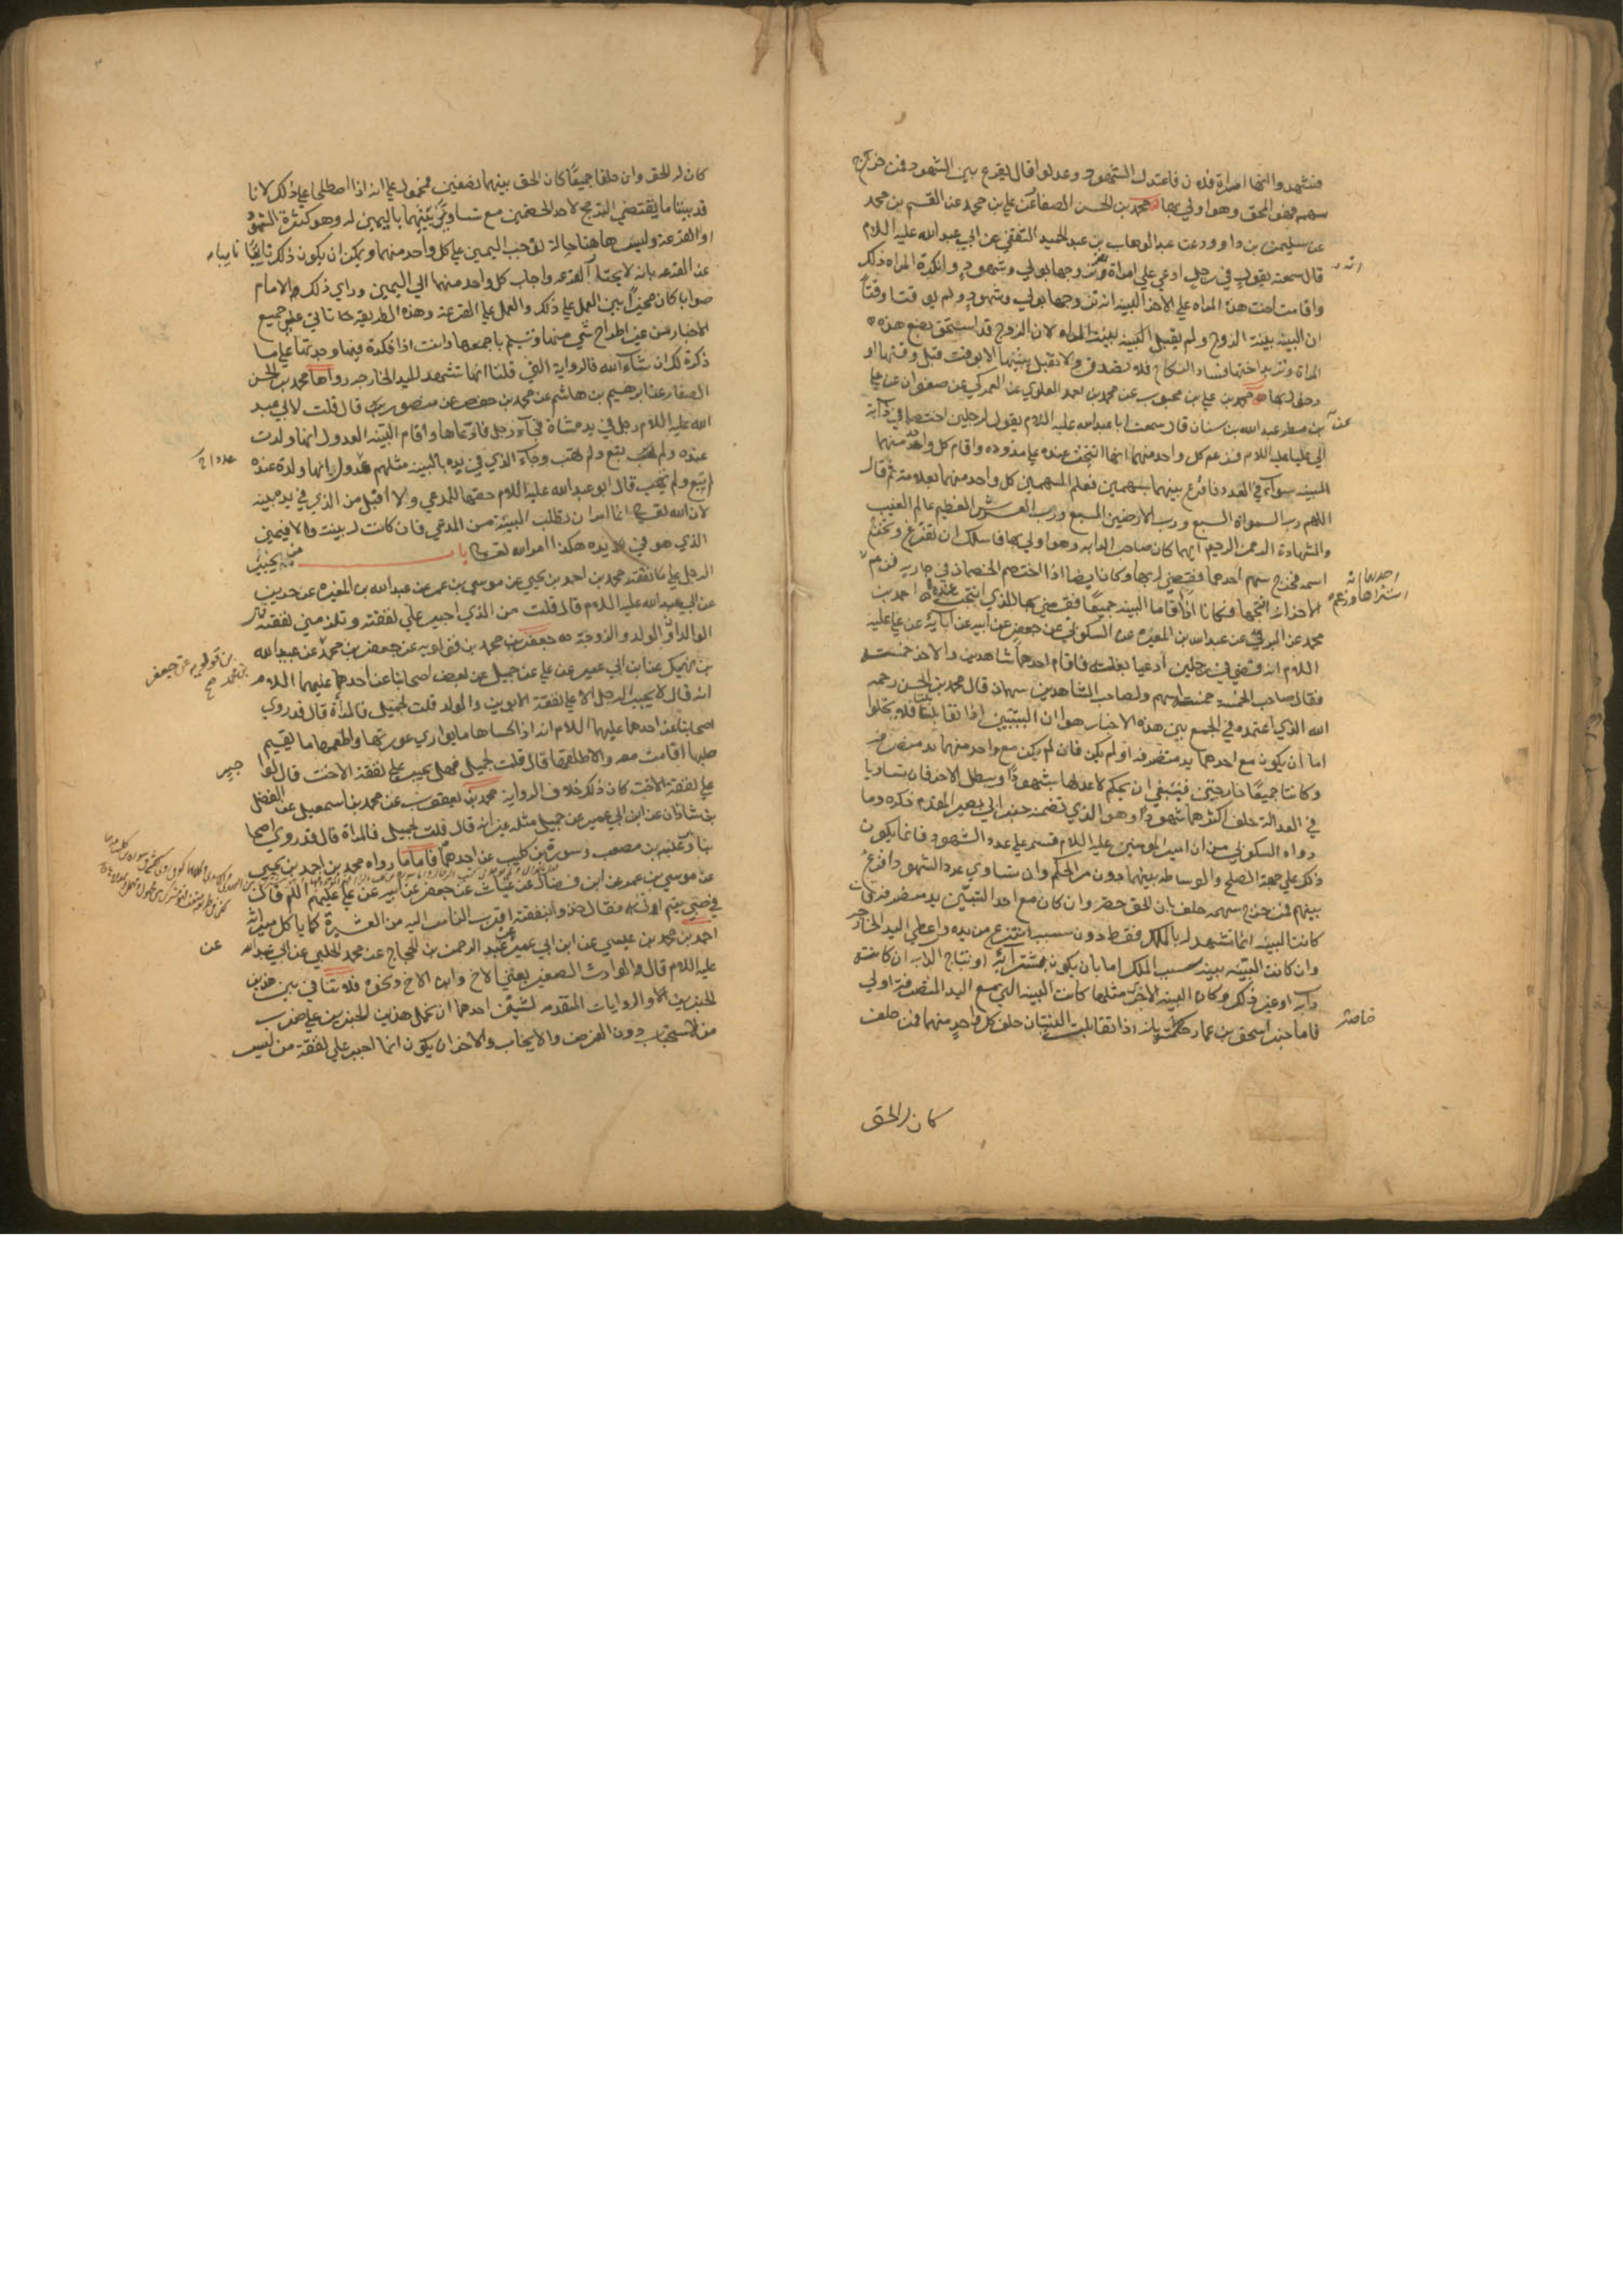 فشهدوا انها امراة فلان فاعتدل الشهود وعدلوا قال يقرع بين الشهود فمن خرج
سهمه فهو المحق وهو اولي بها محمد بن الحسن الصفار عن علي بن محمد عن القسم بن محمد
عن سليمن بن داوود عن عبد الوهاب بن عبد الحميد الثقفي عن ابي عبد الله عليه اللام
قال سمعته يقول في رجل ادعي علي امراة انه تزوجها بولي وشهود وانكرت المراه ذلك
واقامت اخت هذه المراه علي الاخر البينه انه تزوجها بولي وشهود ولم يوقتا وقتا
ان البينه بينة الزوج ولم يقبل البينه بينت المراه لان الزوج قد استحق بضع هذه
المراة وتريد اختها فساد النكاح فلا تصدق ولا تقبل بينتها الا بوقت قبل وقتها او
دخول بها محمد بن علي بن محبوب عن محمد بن احمد العلوي عن العمركي عن صفوان عن علي
بن مطر عن عبد الله بن سنان قال سمعت ابا عبد الله عليه اللام يقول ان رجلين اختصما في دابة
الي علي عليه اللام فزعم كل واحد منهما انها انتجت عنده علي مذوده واقام كل واحد منهما
البينه سواء في العدد فاقرع بينهما سهمين فعلم السهمين كل واحد منهما بعلامة ثم قال
اللهم رب السموات السبع ورب الارضين السبع ورب العرش العظيم عالم الغيب
والشهادة الرحمن الرحيم ايهما كان صاحب الدابه وهو اولي بها فاسلك ان تقرع وتخرج
اسمه فخرج سهم احدهما فقضي له بها وكان ايضا اذا اختصم الخصمان في جاريه فزعم
احدهما انه اشتراها وزعم
الاخر انه انتجها فكانا اذا اقاما البينه جميعا فقضي بها للذي انتجت عنده احمد بن
محمد عن البرقي عن عبد الله بن المغيره عن السكوني عن جعفر عن ابيه عن آبائه عن علي عليه
اللام انه قضي في رجلين ادعيا بغلة فاقام احدهما شاهدين والاخر خمسة
فقال صاحب الخمسة خمسة اسهم ولصاحب الشاهدين سهمان قال محمد بن الحسن رحمه
الله الذي اعتمده في الجمع بين هذه الاخبار هو ان البينتين اذا تقابلتا فلا تخلوا
اما ان يكون مع احدهما يد متصرفه او لم يكن فان لم يكن مع واحد منهما يد متصرفه
وكانتا جميعا خارجتين فينبغي ان يحكم لاعدلهما شهودا ويبطل الاخر فان تساويا
في العدالة حلف اكثرهما شهودا وهو الذي تضمنه خبر ابي بصير المقدم ذكره وما
رواه السكوني من ان امير المومنين عليه اللام قسم علي عدد الشهود فانما يكون
ذكر علي جهة الصلح والوساطه بينهما دون مر الحكم وان تساوي عدد الشهود اقرع
بينهم فمن خرج سهمه حلف بان الحق حقه وان كان مع احد البينتين يد متصرفه فان
كانت البينه انما تشهد له بالملك فقط دون سببه انتزع من يده واعطي اليد الخارجه
وان كانت البينه ببينه سبب الملك اما بان يكون بشرائه او نتاج الدابه ان كانت
دابه او غير ذلك وكان البينه الاخري مثلها كانت البينه التي مع اليد المتصرفة اولي
فاما خبر اسحق بن عمار خاصة بانه اذا تقابلت البينتان حلف كل واحد منهما فمن حلف
كان له الحق
كان له الحق وان حلفا جميعا كان الحق بينهما نصفين فمحمول علي انه اذا اصطلحا علي ذلك لانا
قد بينا ما يقتضي الترجيح لاحد الخصمين مع تساوي بينتهما باليمين له وهو كثرة الشهود
او القرعة وليس هاهنا حالة توجب اليمين علي كل واحد منهما ويمكن ان يكون ذلك نايبا
عن القرعه بان لا يختار القرعه واجاب كل واحد منهما الي اليمين وراي ذلك الامام
صوابا كان مخيرا بين العمل علي ذلك والعمل علي القرعة وهذه الطريقه تاتي علي جميع
الاخبار من غير اطراح شي منها وتسلم باجمعها وانت اذا فكرت فيها وجدتها علي ما
ذكرت لك ان شآء الله فالرواية التي قلنا انها تشهد لليد الخارجه رواها محمد بن الحسن
الصفار عن ابرهيم بن هاشم عن محمد بن حفص عن منصور قال قلت لابي عبد
الله عليه اللام رجل في يده شاة فجآء رجل فادعاها واقام البينه العدول انها ولدت
عنده ولم يبع ولم يهب وجآء الذي في يده بالبينه مثلهم عدول انها ولدت عنده
لم يبع ولم يهب قال ابو عبد الله عليه اللام حقها للمدعي ولا اقبل من الذي في يده بينه
لان الله تعالي انما امر ان تطلب البينة من المدعي فان كانت له بينة والا فيمين
الذي هو في يده هكذا امر الله تعالي باب من يجبر
الرجل علي نفقته محمد بن احمد بن يحيي عن موسي بن عمر عن عبد الله بن المغيره عن حريز
عن ابي عبد الله عليه اللام قال قلت من الذي اجبر علي نفقته وتلزمني نفقته قال
الوالدان والولد والزوجة جعفر بن محمد بن قولويه عن جعفر بن محمد عن عبيد الله
بن نهيك عن ابن ابي عمير عن علي عن جميل عن بعض اصحابنا عن احدهما عليهما اللام
انه قال لا يجبر الرجل الا علي نفقة الابوين والولد قلت لجميل فالمرأة قال قد روي
اصحابنا عن احدهما عليهما اللام انه اذا كساها ما يواري عورتها واطعمها ما يقيم
صلبها اقامت معه والا طلقها قال قلت لجميل فهل يجبر علي نفقة الاخت قال لو اجبر
علي نفقة الاخت كان ذلك خلاف الرواية محمد بن يعقوب عن محمد بن اسمعيل عن الفضل
بن شاذان عن ابن ابي عمير عن جميل مثله غير انه قال قلت لجميل فالمراة قال قد روي اصحا
بنا عنبسه بن مصعب وسورة بن كليب عن احدهما فاما ما رواه محمد بن احمد بن يحيي
عن موسي بن عمر عن ابن فضال عن غياث عن جعفر عن ابيه عن علي عليهم اللم قال
في صبي يتيم اوتي به فقال خذوا بنفقته اقرب الناس اليه من العشيرة كما ياكل ميراثه
احمد بن محمد بن عيسي عن ابن ابي عمير عن عبد الرحمن بن الحجاج عن محمد الحلبي عن ابي عبد الله
عليه اللام قال والوارث الصغير يعني الاخ وابن الاخ ونحوه فلا تنافي بين هذين
الخبرين والروايات المتقدمه لشيئين احدهما ان نحمل هذين الخبرين علي ضرب
من الاستحباب دون الفرض والايجاب والاخر ان يكون انما اجبر علي نفقة من ليس